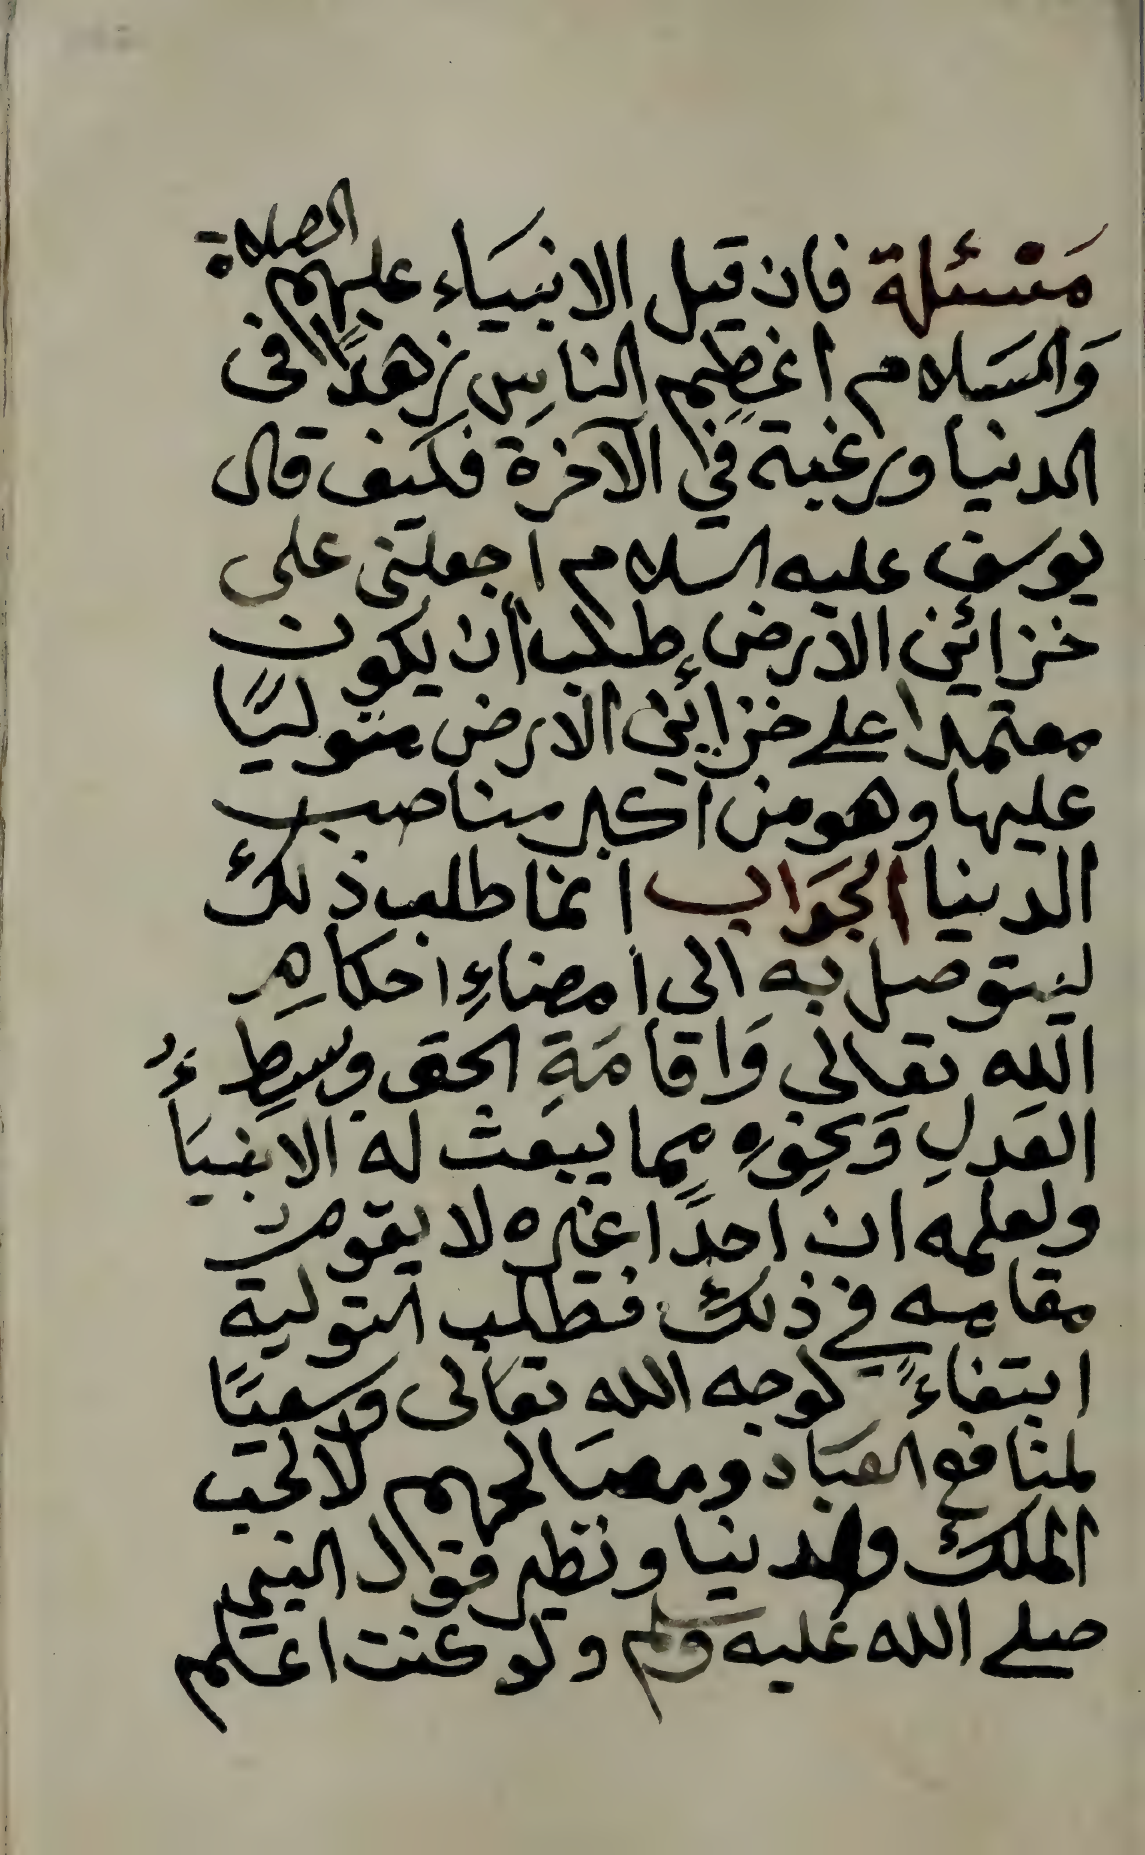 مَسْئَلة فان قيل الانبيَاء عليهم الصلاة
وَالسَلام اعظِم الناسِ زهدًا فى
الدنيا ورغبة في الآخرة فكيف قال
يوسف عليه السلام اجعلنى على
خزائن الارض طلب أن يكون
معتمدا على خزائن الارض متوليًا
عليها وهو من اكبر مناصب
الدينا الجوَاب انما طلب ذلك
ليتوصل به الى امضاءِ احكامِ
الله تعالى وَاقامَةِ الحق وبسطِ
العَدلِ وَنحوِهِ مِما يبعَث له الانبيَاءُ
ولعلمه ان احدًا غيره لا يقوم
مقامه في ذلك فطلب التولية
ابتغاءً لوجه الله تعَالى وَسَعيًا
لمنافع العبَاد ومصَالحهم لا لحب
الملك والدينا ونظير قول النبي
صلى الله عَليه وسلم ولو كنت اعلم